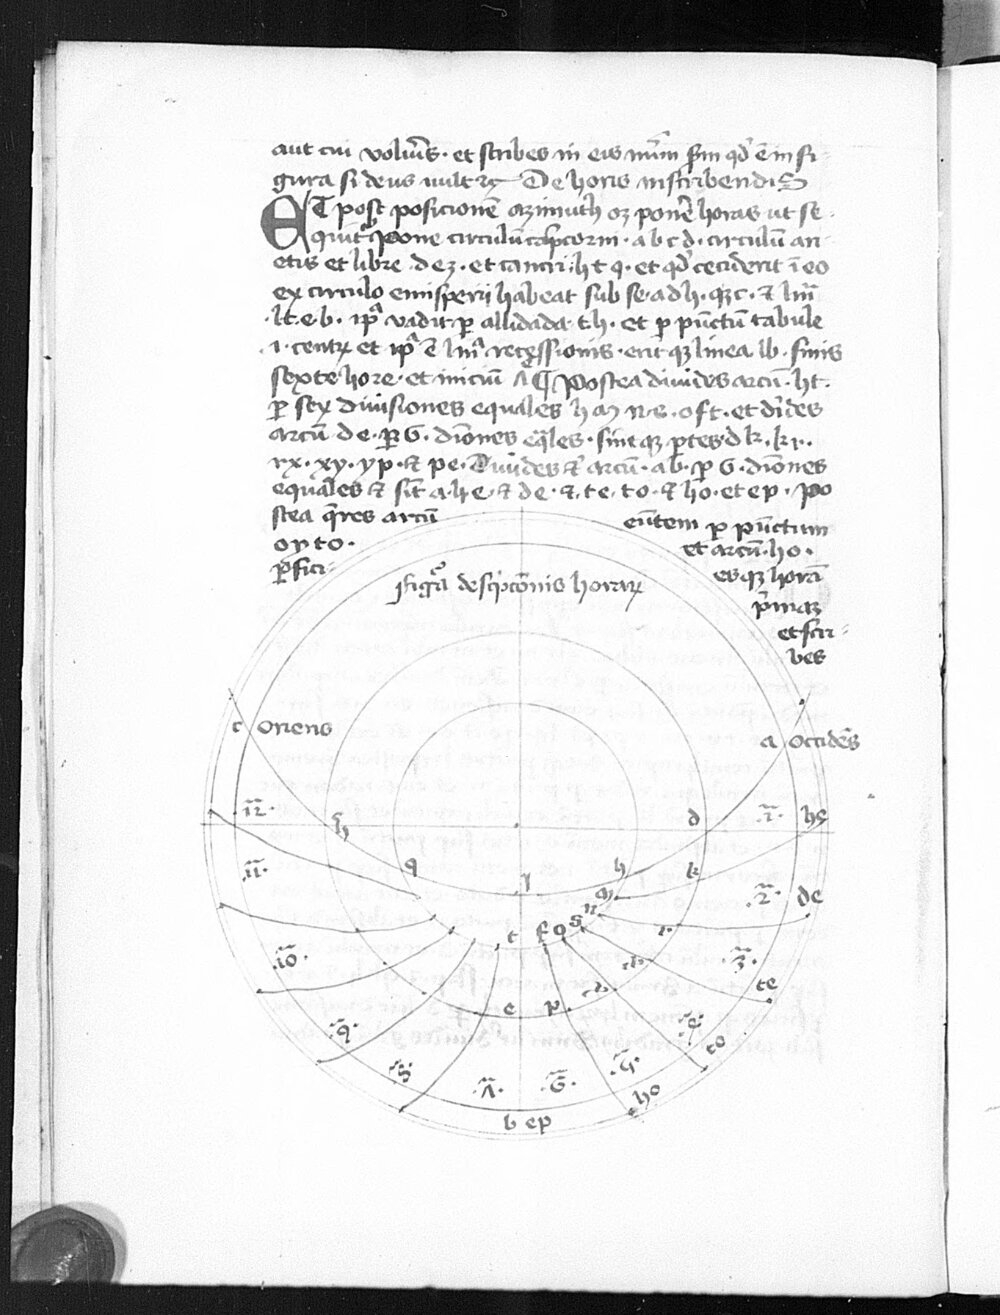 aut cui volu̅is · et scribes in eis nu̅m s̅m qđ e̅ in fi-
gura si deus uult ⁊ç De horis inscribendis
ET post posicione̅ azimuth oꝫ pone̅ horas ut se-
quit᷑ Pone circulu̅ cap̅corni · a b c d · circulu̅ ari-
etis et libre · d e z · et cancri · h t q · et qđ ceciderit i̅ eo
ex circulo emisperii habeat sub se · a d h · qꝫ c · ⁊ lin̅
· l t · e · b · ip̅a vadit ꝑ allidada · t h · et ꝑ pu̅ctum tabule
· i · centrꝝ et ip̅a e̅ lin̅a · erit qꝫ linea · lb · finis
sexte hore · et iniciu̅ ꓥ ¶ Postea diuides arcu̅ · ht ·
ꝑ sex diuisiones equales h m n · s · o f t · et di̅des
arcu̅ d e · ꝑ 6 · di̅ones eq̅les · sint qꝫ ꝑtes · d k · k r ·
r x · x y · y p · ⁊ p e · Diuides ⁊ arcu̅ · ab · ꝑ 6 · di̅ones
equales ⁊ si̅t a · h e · ⁊ d e · ⁊ · t e · t o · ⁊ h o · et e p · Po
stea q̅res arcu̅ eu̅tem ꝑ pu̅ctum
o y t o · et arcu̅ · h o ·
ꝑfici- es qꝫ hora̅
p̅maꝫ
et scri-
bes
figᷓa desc̅pto̅nis horaꝝ
c Oriens
a Occide̅s
12 h d 1 h e
11 q l h k 2 d e
m
n
10 t f o s r 3 t e
x
y
9 e p 4 t o
8 5 h o
ꓥ 6
b e p